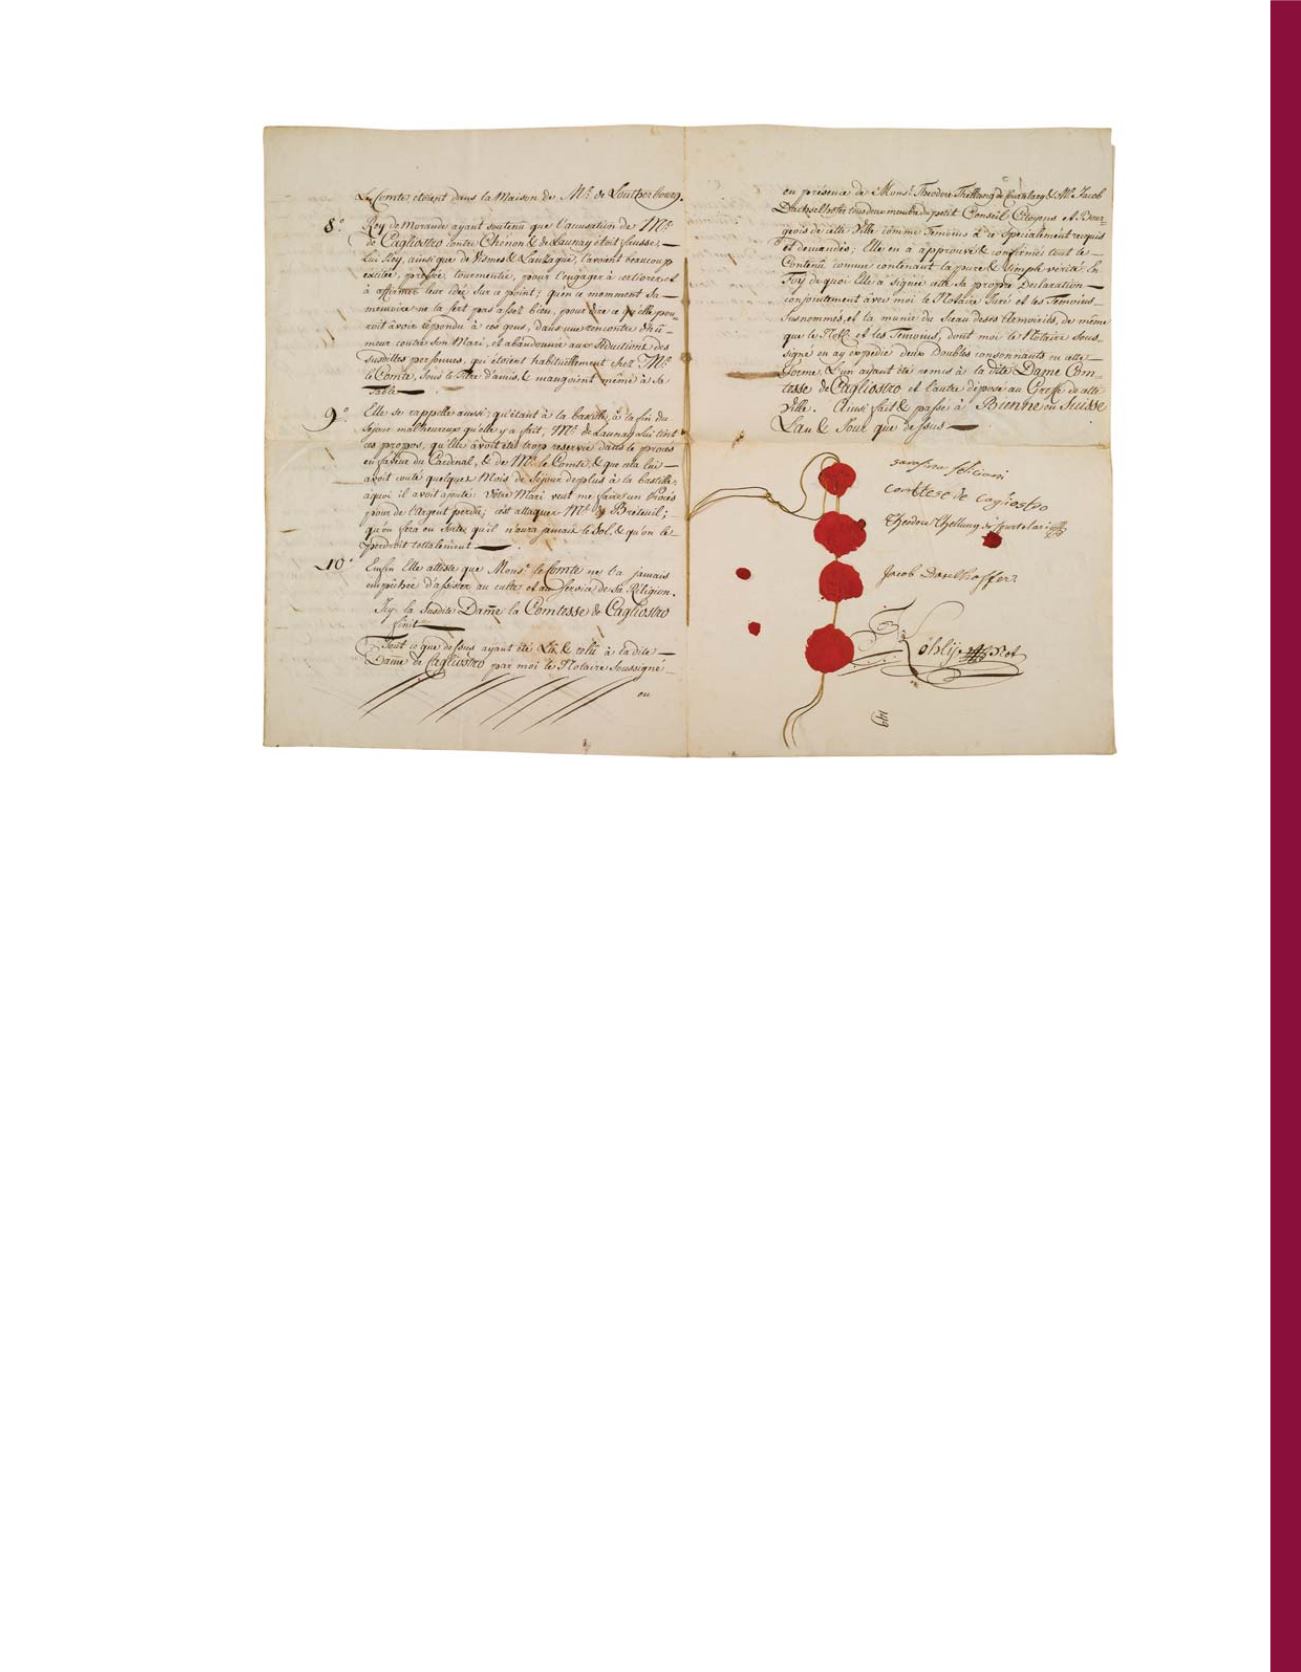 Le Comte étoient dans la Maison de Mr. de Loutherbourg.
8° Rey de Morande ayant soutenû que l'accusation de Mr.
de Cagliostro contre Chenon & de Launay étoit fausse; —
lui Rey, ainsi que de Vismes & Lauzague, l'avoient beaucoup
excitée, préssée, tourmentée, pour l'engager à
à affirmer leur idée sur ce point; qu'en ce momment Sa —
memoire ne la sert pas assez bien, pour dire ce qu'elle pou-
roit avoir répondu à ces gens, dans une rencontre d'hu-
meur contre son Mari, et abandonnée aux séductions des
susdittes personnes, qui étoient habituellement chez Mr.
le Comte, sous le Titre d'amis, & mangoient même à Sa
Table —
9° Elle se rappelle aussi; qu'étant à la bastille, à la fin du
séjour malheureux qu'elle y a fait, Mr. de Launay lui tint
ces propos, qu'Elle avoit été trop reservée dans le procés
en faveur du Cardinal, & de Mr. le Comte, & que cela lui —
avoit couté quelques Mois de Séjour de plus à la bastille;
aquoi il avoit ajouté: Vôtre Mari veut me faire un Procés
pour de l'Argent perdu; c'est attaquer Mr. de Breteuil; —
qu'on fera en sorte qu'il n'aura jamais le Sol, & qu'on le
perdroit tottalement —
10° Enfin Elle atteste que Monsr. le Comte ne l'a jamais
empechée d'assister au culte et au Service de Sa Réligion.
Icy la susdite Dame la Comtesse de Cagliostro
finit —
Tout ce que dessus ayant été Lû & relû à la dite —
Dame de Cagliostro par moi le Notaire Soussigné —
en
en présence de Monsr. Theodore Thellung de Courtlary & Mr. Jacob
Dachselhofer tous deux membres du petit Conseil Citoyens et Bour-
geois de cette Ville comme Temoins à ce Spécialement requis
et demandés; Elle en à approuvé & confirmé tout le —
Contenû comme contenant la pure & simple vérité. En
Foy de quoi Elle à signée cette Sa propre Declaration —
conjointement avec moi le Notaire Juré et les Temoins —
Susnommés, et la munie du Sceau de ses Armoiries, de même
que le Notr. et les Temoins, dont moi le Notaire Sous-
signé en ay expedié deux Doubles consonnants en cette —
forme. L'un ayant été remis à la dite Dame Com-
tesse de Cagliostro et l'autre déposé au Greffe de cette
Ville. Ainsi fait & passé à Bienne en Suisse
L'an & Jour que dessus —
sarafina feliciani
comtese de cagliostro
Theodore Thellung de Courtelari
Jacob Daxelhoffer
Köhly Not
149